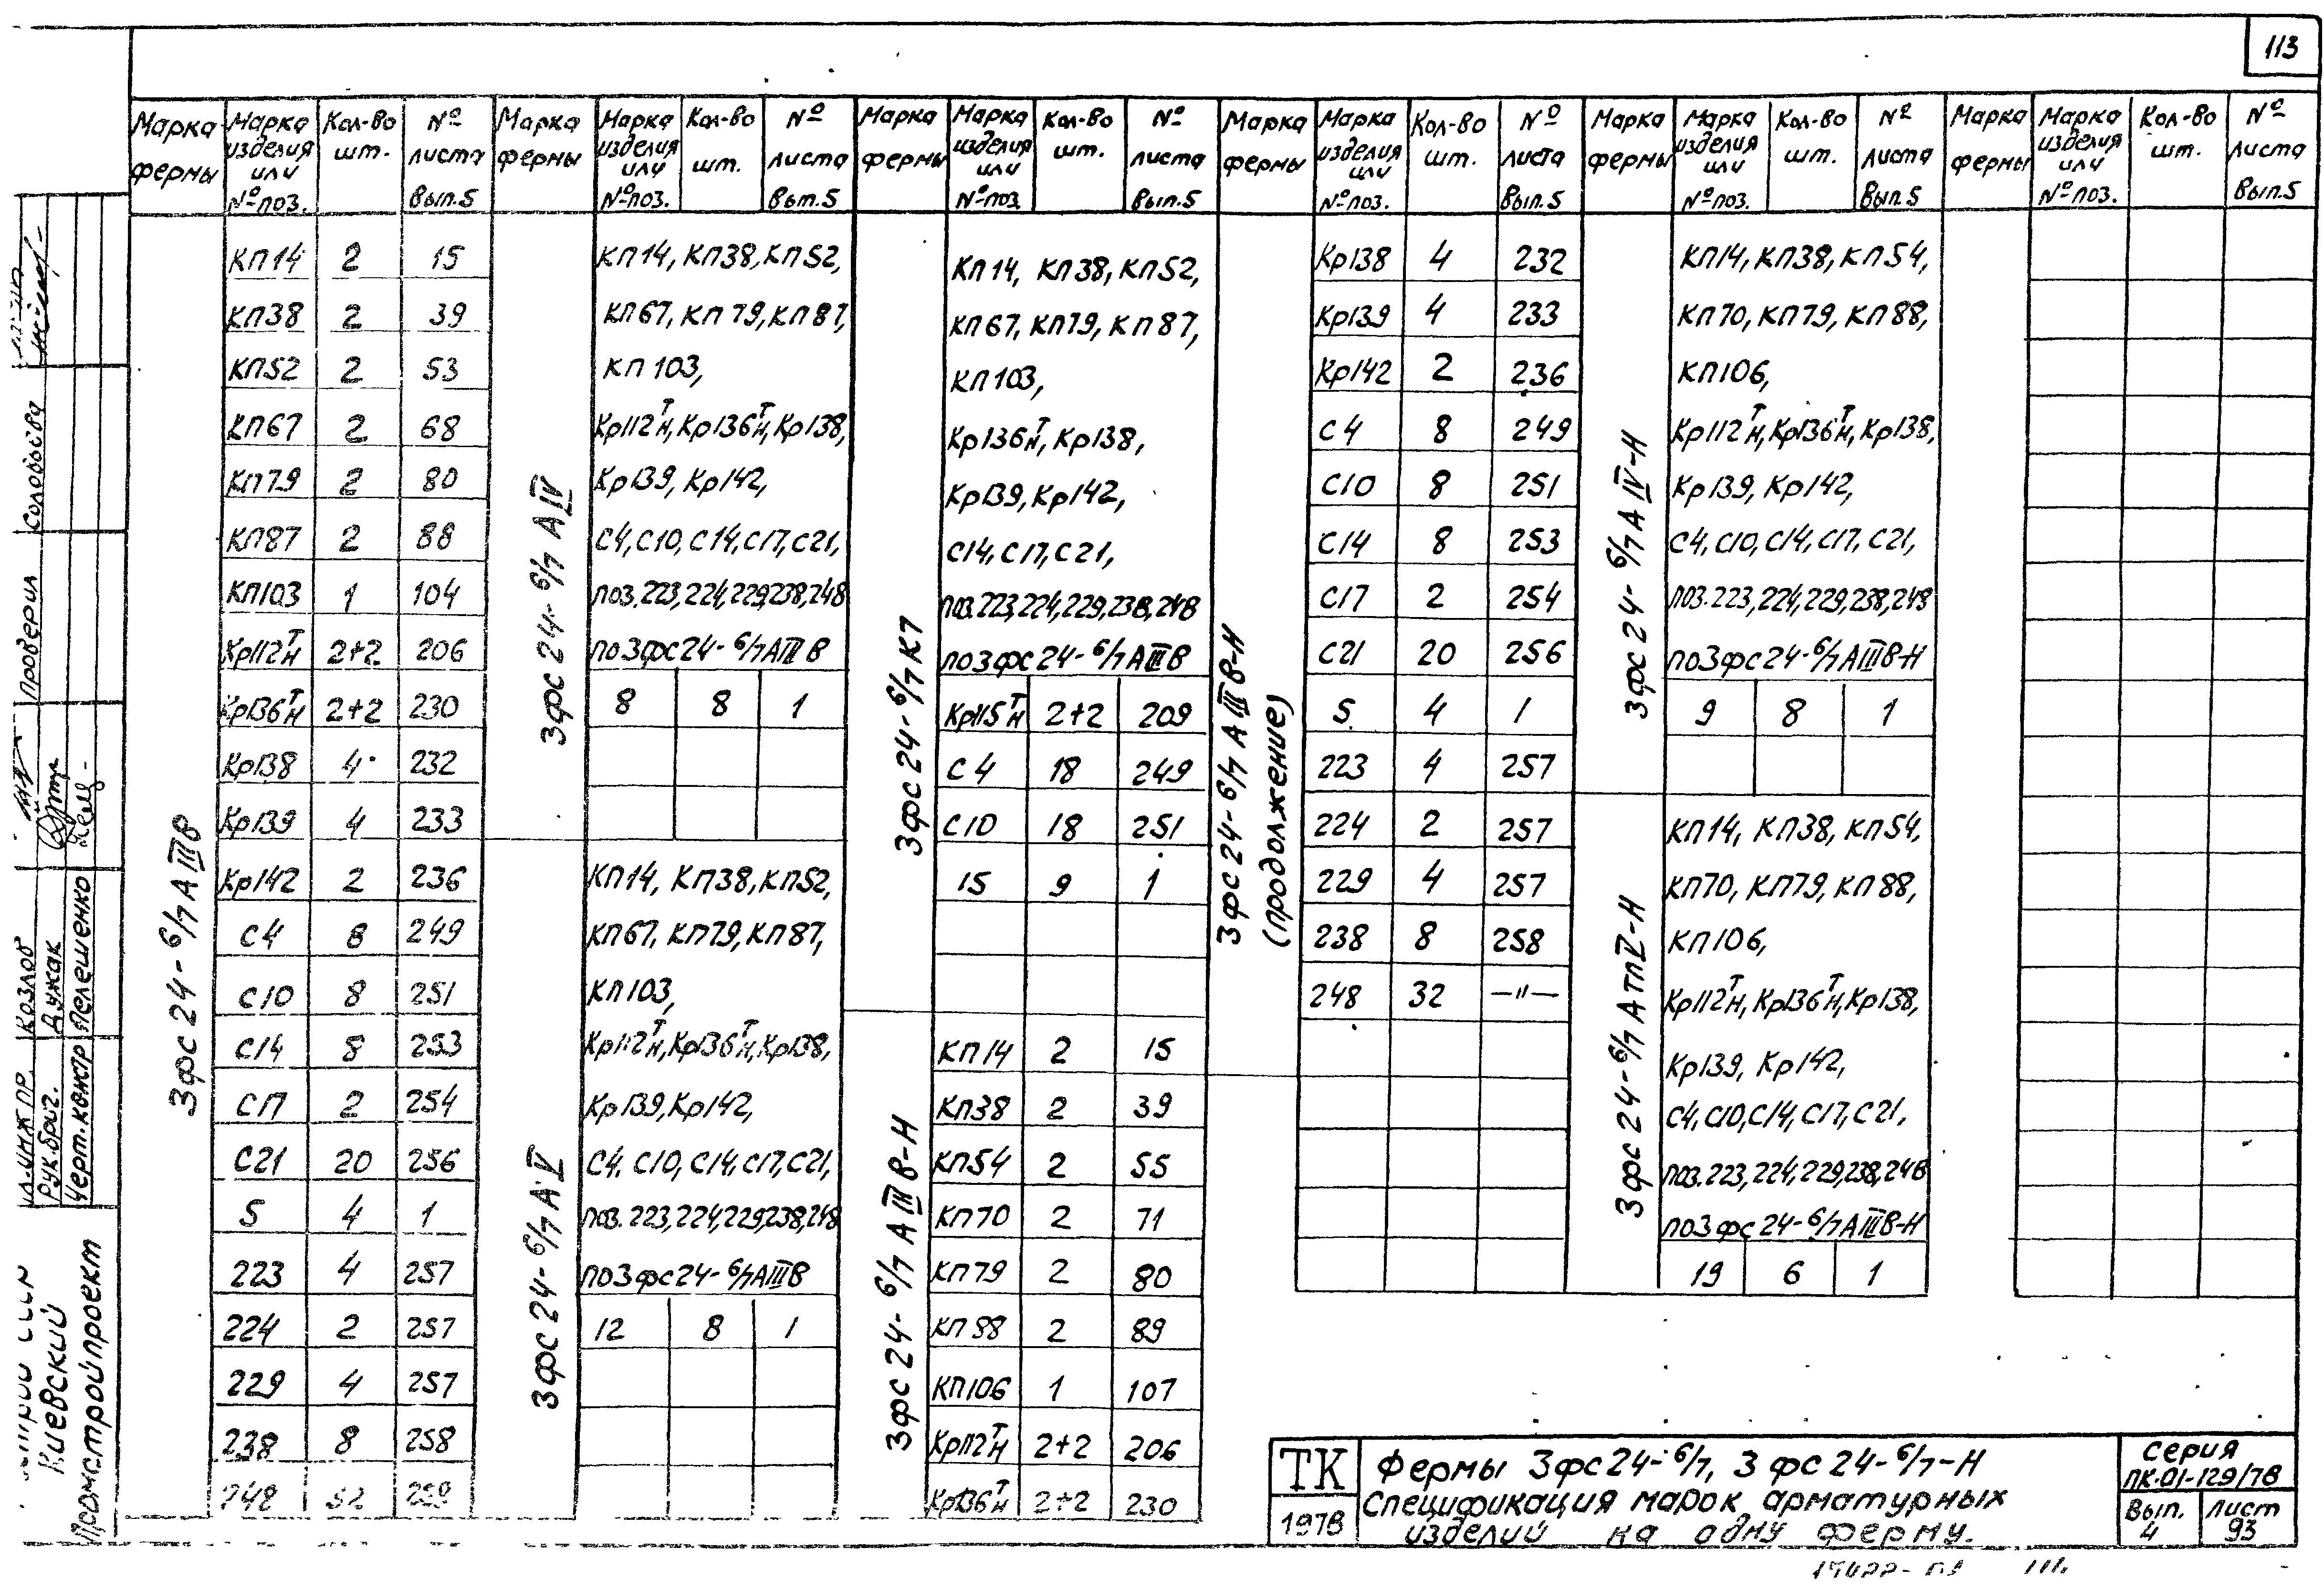 113
Марка фермы | Марка изделия или № поз. | Кол-во шт. | № листа Вып.5 | Марка фермы | Марка изделия или № поз. | Кол-во шт. | № листа Вып.5 | Марка фермы | Марка изделия или № поз. | Кол-во шт. | № листа Вып.5 | Марка фермы | Марка изделия или № поз. | Кол-во шт. | № листа Вып.5 | Марка фермы | Марка изделия или № поз. | Кол-во шт. | № листа Вып.5 | Марка фермы | Марка изделия или № поз. | Кол-во шт. | № листа Вып.5
3фс 24-6/7 АIIIв
КП14 2 15
КП38 2 39
КП52 2 53
КП67 2 68
КП79 2 80
КП87 2 88
КП103 1 104
Кр112Тн 2+2 206
Кр136Тн 2+2 230
Кр138 4 232
Кр139 4 233
Кр142 2 236
С4 8 249
С10 8 251
С14 8 253
С17 2 254
С21 20 256
5 4 1
223 4 257
224 2 257
229 4 257
238 8 258
248
3фс 24-6/7 АIV
КП14, КП38, КП52,
КП67, КП79, КП87,
КП103,
Кр112Тн, Кр136Тн, Кр138,
Кр139, Кр142,
С4, С10, С14, С17, С21,
поз. 223, 224, 229, 238, 248
по 3фс 24-6/7 АIIIв
8 8 1
3фс 24-6/7 АV
КП14, КП38, КП52,
КП67, КП79, КП87,
КП103,
Кр112Тн, Кр136Тн, Кр138,
Кр139, Кр142,
С4, С10, С14, С17, С21,
поз. 223, 224, 229, 238, 248
по 3фс 24-6/7 АIIIв
12 8 1
3фс 24-6/7 К7
КП14, КП38, КП52,
КП67, КП79, КП87,
КП103,
Кр136Тн, Кр138,
Кр139, Кр142,
С14, С17, С21,
поз. 223, 224, 229, 238, 248
по 3фс 24-6/7 АIIIв
Кр115Тн 2+2 209
С4 18 249
С10 18 251
15 9 1
3фс 24-6/7 АIIIв-Н
КП14 2 15
КП38 2 39
КП54 2 55
КП70 2 71
КП79 2 80
КП88 2 89
КП106 1 107
Кр112Тн 2+2 206
Кр136Тн 2+2 230
3фс 24-6/7 АIIIв-Н
(продолжение)
Кр138 4 232
Кр139 4 233
Кр142 2 236
С4 8 249
С10 8 251
С14 8 253
С17 2 254
С21 20 256
5 4 1
223 4 257
224 2 257
229 4 257
238 8 258
248 32 —"—
3фс 24-6/7 АIV-Н
КП14, КП38, КП54,
КП70, КП79, КП88,
КП106,
Кр112Тн, Кр136Тн, Кр138,
Кр139, Кр142,
С4, С10, С14, С17, С21,
поз. 223, 224, 229, 238, 248
по 3фс 24-6/7 АIIIв-Н
9 8 1
3фс 24-6/7 АтпV-Н
КП14, КП38, КП54,
КП70, КП79, КП88,
КП106,
Кр112Тн, Кр136Тн, Кр138,
Кр139, Кр142,
С4, С10, С14, С17, С21,
поз. 223, 224, 229, 238, 248
по 3фс 24-6/7 АIIIв-Н
19 6 1
Киевский
Промстройпроект
Козлов
Рук. бриг. Дужак
Черт. констр Пелешенко
Проверил Соловьёва
ТК
1978
Фермы 3фс 24-6/7, 3фс 24-6/7-Н
Спецификация марок арматурных
изделий на одну ферму.
Серия
ПК-01-129/78
Вып. 4
Лист 93